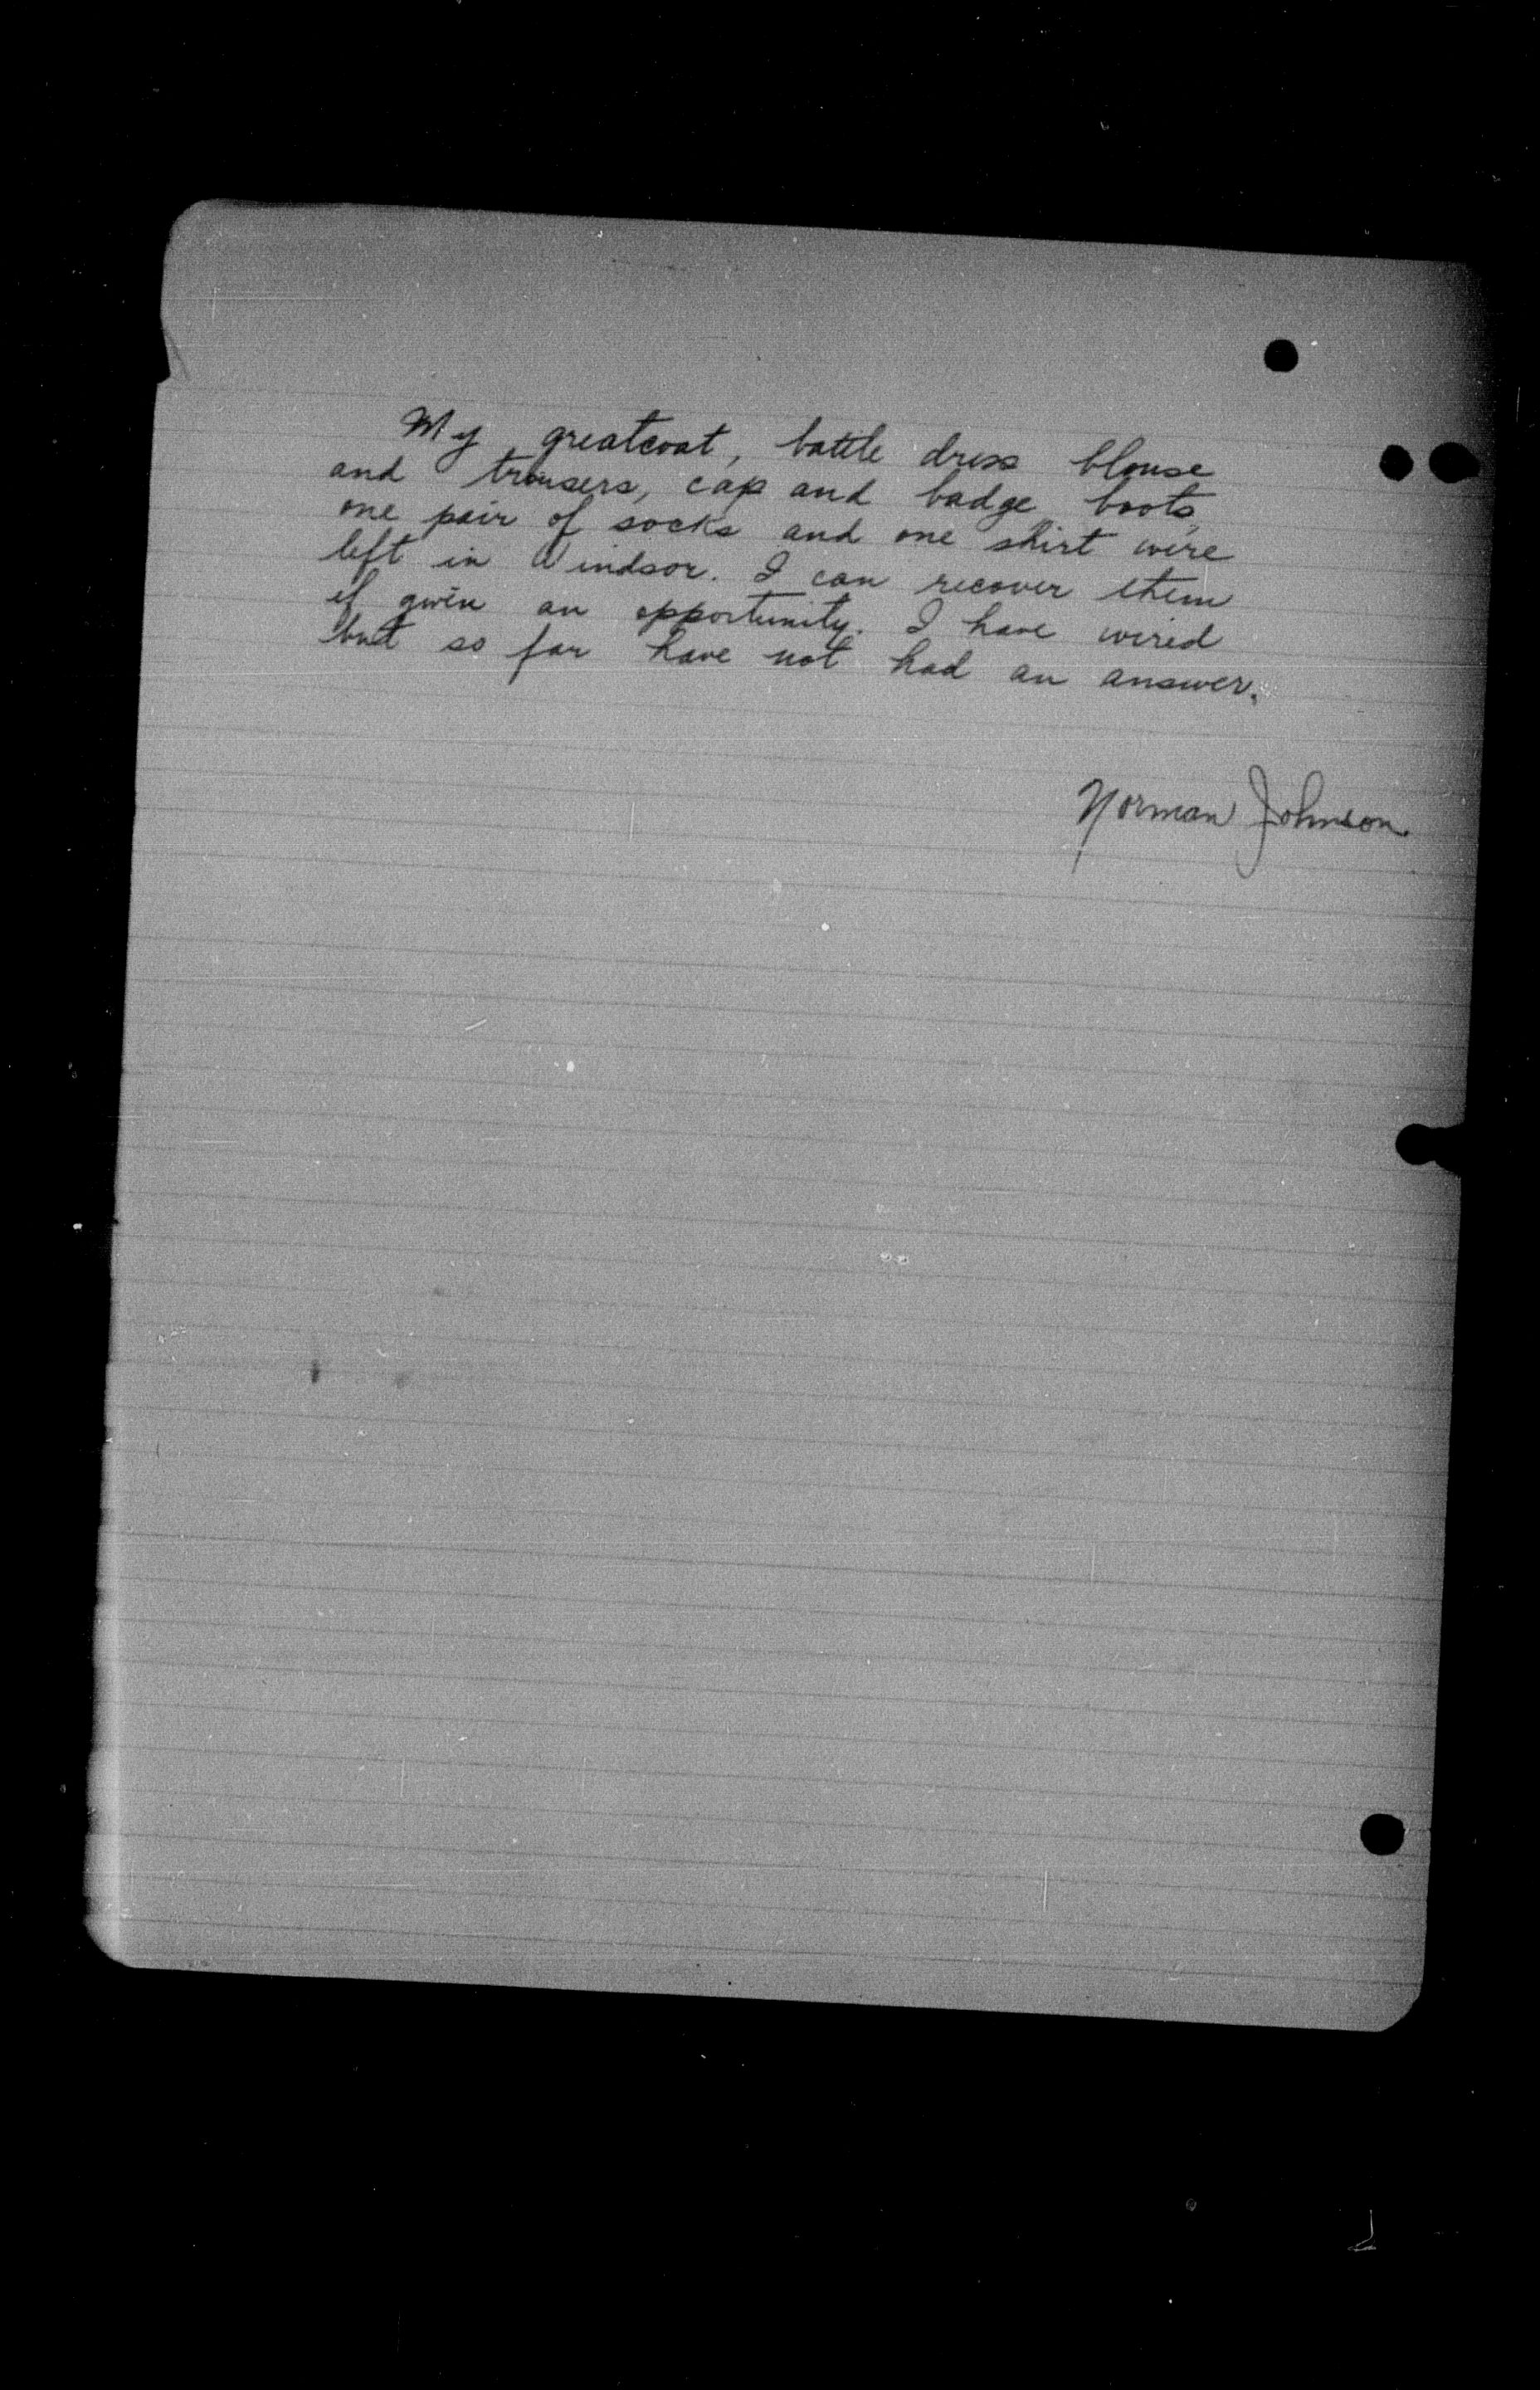 My greatcoat, battle dress blouse
and trousers, cap and badge, boots,
one pair of socks and one shirt were
left in Windsor. I can recover them
if given an opportunity. I have wired
but so far have not had an answer.
Norman Johnson.